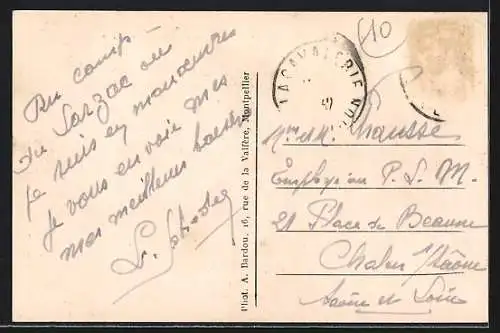 Du camp
du Larzac où
je suis en manœuvres
je vous envoie mes
mes meilleurs baisers
L.
Phot. A. Bardou. 16, rue de la Valfère, Montpellier
LACAVALERIE
10
Mme & M. Mausse
Employé au P. L. M.
21 Place de Beaune
Chalon s/ Saône
Saône et Loire